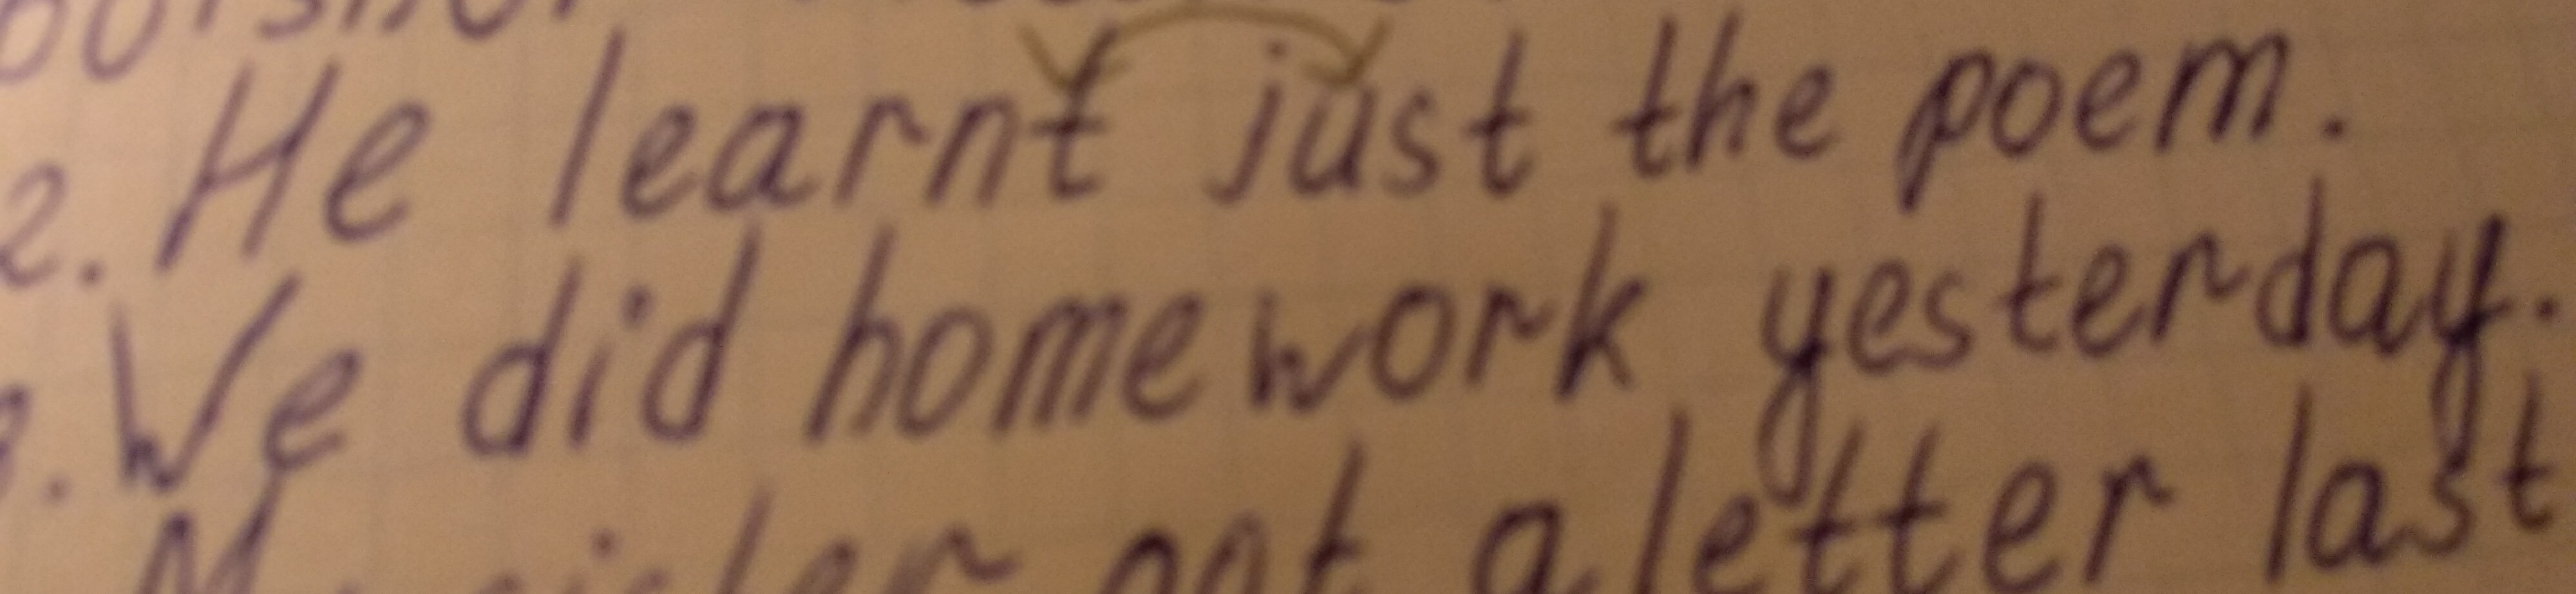 2. He learnt just the poem.
We did homework yesterday.
My sister got a letter last